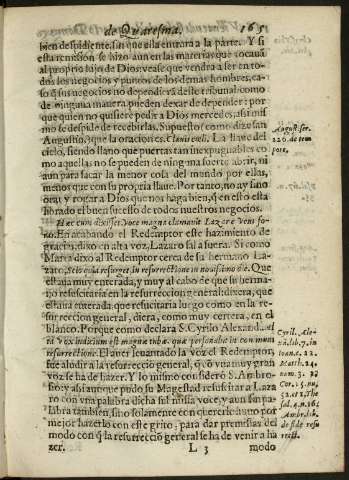 de Quaresma. 165
bien despidiente, sin que ella entrara a la parte. Y si
esta remission se hizo aun en las materias que tocauã
al proprio hijo de Dios: vease que vendra a ser en to-
dos los negocios y puntos de los demas hombres, ca-
so q̃ sus negocios no dependierã deste tribunal como
de ninguna manera pueden dexar de depender: por
que quien no quisiere pedir a Dios mercedes, assi mis
mo se despide de recebirlas. Supuesto, como dize san
Augustin, que la oracion es. Clauis cæli. La llaue del
cielo, siendo llano que puertas tan inexpugnables co
mo aquellas no se pueden de ninguna suerte abrir, ni
aun para sacar la menor cosa del mundo por ellas,
menos que con su propria llaue. Por tanto, no ay sino
orar y rogar a Dios que nos haga bien, q̃ en esto esta
librado el buen sucesso de todos nuestros negocios.
Hæc cum dixisset voce magna clamauit Lazare veni fo-
ras. En acabando el Redemptor este hazimiento de
gracias, dixo en alta voz, Lazaro sal a fuera. Si como
Marta dixo al Redemptor cerca de su hermano La-
zaro, Scio quia resurget in resurrectione in nouissimo die. Que
estaua muy enterada, y muy al cabo de que su herma-
no resuscitaria en la resurreccion general: dixera, que
estaua enterada que resucitaria luego como en la re-
surreccion general, diera, como muy certera, en el
blanco. Porque como declara S. Cyrilo Alexand.
Vox indicium est magnæ tubæ, quæ personabit in communi
resurrectione. El auer leuantado la voz el Redemptor,
fue aludir a la resurreccio general, q̃ cõ vna muy gran
voz se ha de hazer. Y lo mismo cõsiderò S. Ambro-
sio; y assi aunque pudo su Magestad resuscitar a Laza
ro con vna palabra dicha sin mucha voz, y aun sin pa-
labra tambien, sino solamente con quererle, tuuo por
mejor hazerlo con este grito: para dar premissas del
modo con q̃ la resurrecciõ general se ha de venir a ha
zer. L 3 modo
August. ser.
226. de tem
pore.
Cyril. Ale-
xã. lib. 7. in
Ioan. c. 22.
Math. 24.
num. 3.
Cor. 15. nu.
52. et 1. The
sal. 4. n. 16.
Ambr. lib.
de fide resu
rrect.